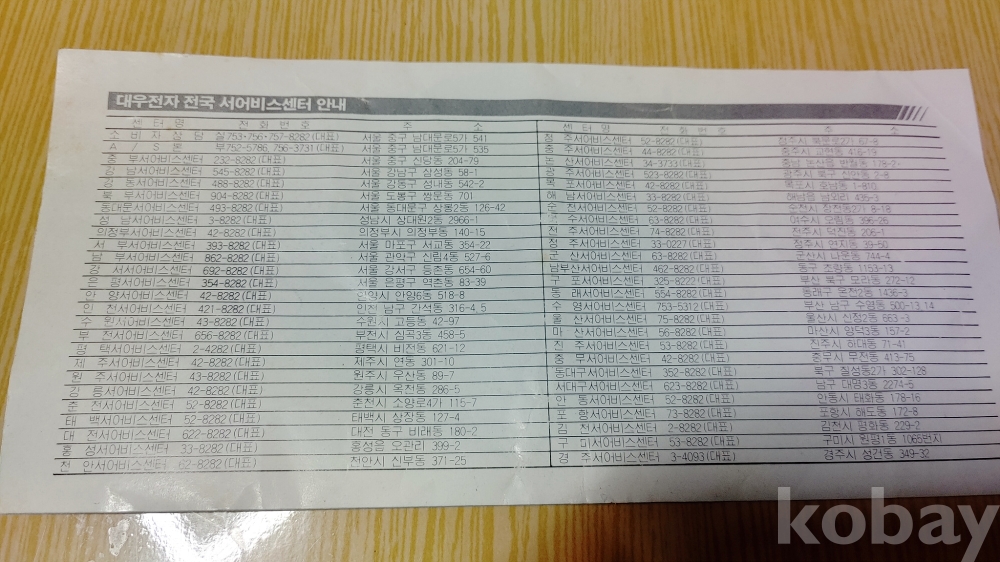 대우전자 전국 서어비스센터 안내
센터명 전화번호 주소
소비자상담실 753·756·757-8282(대표) 서울 중구 남대문로5가 541
A/S본부 752-5786, 756-3731(대표) 서울 중구 남대문로5가 535
중부서어비스센터 232-8282(대표) 서울 중구 신당동 204-79
강남서어비스센터 545-8282(대표) 서울 강남구 삼성동 58-1
강동서어비스센터 488-8282(대표) 서울 강동구 성내동 542-2
북부서어비스센터 904-8282(대표) 서울 도봉구 쌍문동 701
동대문서어비스센터 493-8282(대표) 서울 동대문구 상봉2동 126-42
성남서어비스센터 3-8282(대표) 성남시 상대원2동 2966-1
의정부서어비스센터 42-8282(대표) 의정부시 의정부동 140-15
서부서어비스센터 393-8282(대표) 서울 마포구 서교동 354-22
남부서어비스센터 862-8282(대표) 서울 관악구 신림4동 527-6
강서서어비스센터 692-8282(대표) 서울 강서구 등촌동 654-60
은평서어비스센터 354-8282(대표) 서울 은평구 역촌동 83-39
안양서어비스센터 42-8282(대표) 안양시 안양6동 518-8
인천서어비스센터 421-8282(대표) 인천 남구 간석동 316-4,5
수원서어비스센터 43-8282(대표) 수원시 고등동 42-97
부천서어비스센터 656-8282(대표) 부천시 심곡3동 458-5
평택서어비스센터 2-4282(대표) 평택시 비전동 621-12
제주서어비스센터 42-8282(대표) 제주시 연동 301-10
원주서어비스센터 43-8282(대표) 원주시 우산동 89-7
강릉서어비스센터 42-8282(대표) 강릉시 옥천동 286-5
춘천서어비스센터 52-8282(대표) 춘천시 소양로4가 115-7
태백서어비스센터 52-8282(대표) 태백시 상장동 127-4
대전서어비스센터 622-8282(대표) 대전 동구 비래동 180-2
홍성서어비스센터 33-8282(대표) 홍성읍 오관리 399-2
천안서어비스센터 62-8282(대표) 천안시 신부동 371-25
센터명 전화번호 주소
청주서어비스센터 52-8282(대표) 청주시 북문로2가 67-8
충주서어비스센터 44-8282(대표) 충주시
논산서어비스센터 34-3733(대표) 충남 논산읍 반월동 178-2
광주서어비스센터 523-8282(대표) 광주시 북구 신안동 2-8
목포서어비스센터 42-8282(대표) 목포시 호남동 1-810
해남서어비스센터 33-8282(대표) 해남읍 남외리 435-3
순천서어비스센터 52-8282(대표) 순천시 장천동2가 8-18
여수서어비스센터 63-8282(대표) 여수시 오림동 396-26
전주서어비스센터 74-8282(대표) 전주시 덕진동 206-1
정주서어비스센터 33-0227(대표) 정주시 연지동 39-50
군산서어비스센터 63-8282(대표) 군산시 나운동 744-4
남부산서어비스센터 462-8282(대표) 동구 초량동 1153-13
구포서어비스센터 325-8222(대표) 부산 북구 모라동 272-12
동래서어비스센터 554-8282(대표) 동래구 온천2동 1436-3
수영서어비스센터 753-5312(대표) 부산 남구 수영동 500-13,14
울산서어비스센터 75-8282(대표) 울산시 신정2동 663-3
마산서어비스센터 56-8282(대표) 마산시 양덕3동 157-2
진주서어비스센터 53-8282(대표) 진주시 하대동 71-41
충무서어비스센터 42-8282(대표) 충무시 무전동 413-75
동대구서어비스센터 352-8282(대표) 북구 칠성동2가 302-128
서대구서어비스센터 623-8282(대표) 남구 대명3동 2274-5
안동서어비스센터 52-8282(대표) 안동시 태화동 178-16
포항서어비스센터 73-8282(대표) 포항시 해도동 172-8
김천서어비스센터 2-8282(대표) 김천시 평화동 229-2
구미서어비스센터 53-8282(대표) 구미시 원평1동 1065번지
경주서어비스센터 3-4093(대표) 경주시 성건동 349-32
kobay